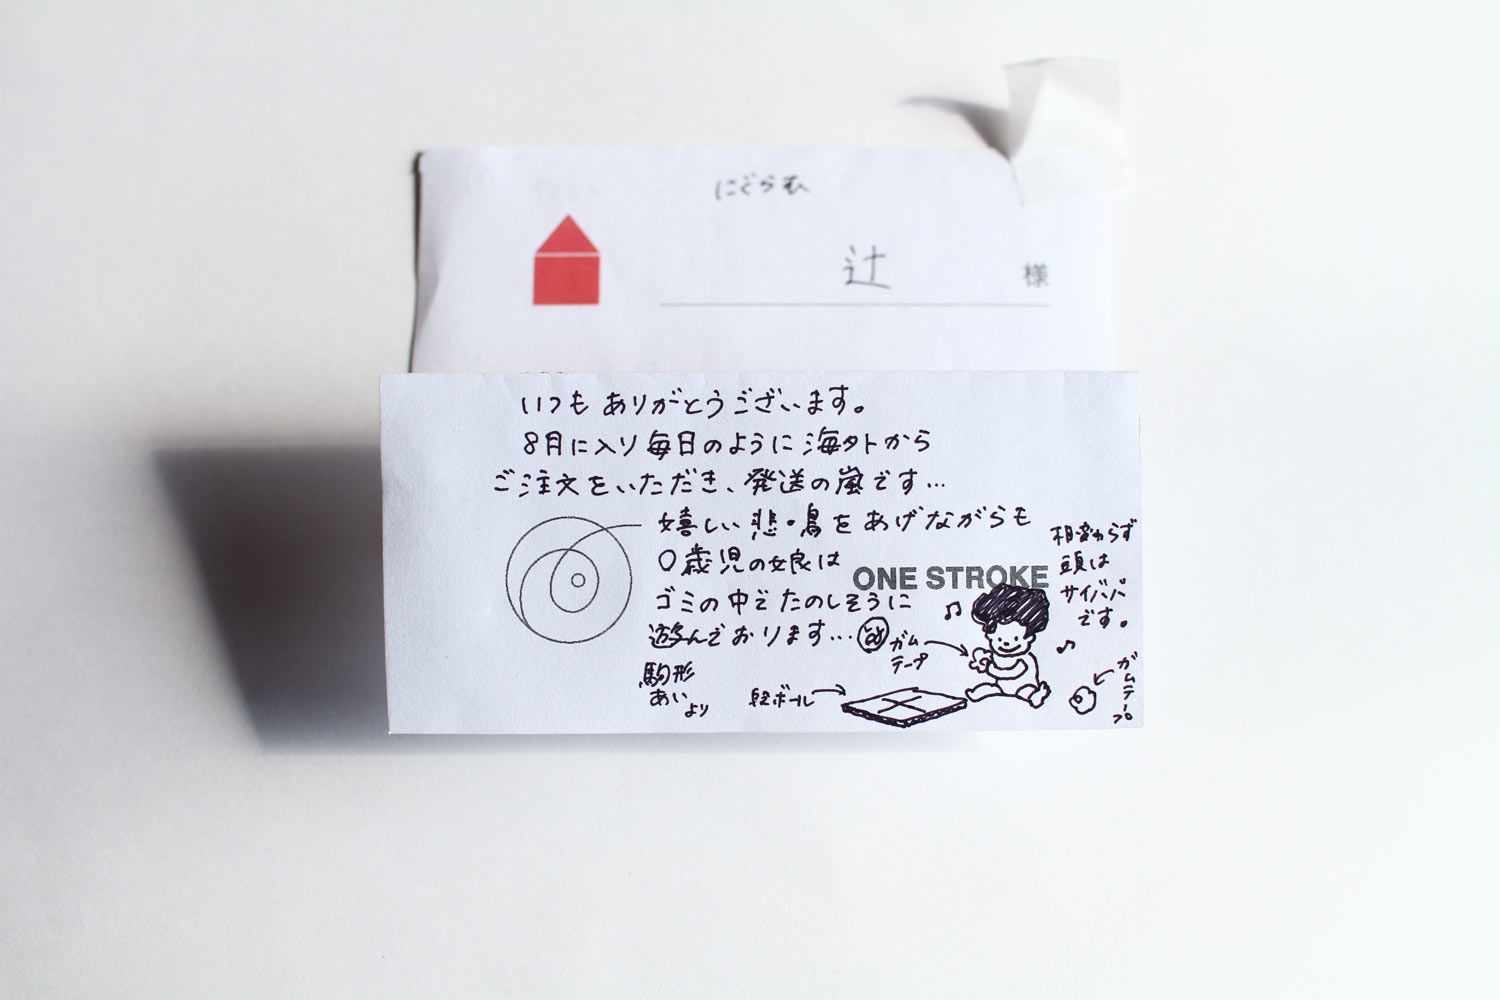 にぐらむ
辻 様
いつもありがとうございます。
8月に入り毎日のように海外から
ご注文をいただき、発送の嵐です…
嬉しい悲鳴をあげながらも
0歳児の娘は
ONE STROKE
ゴミの中でたのしそうに
遊んでおります…
相変わらず
頭は
サイババ
です。
ガム
テープ
ガムテープ
段ボール
駒形
あい
より